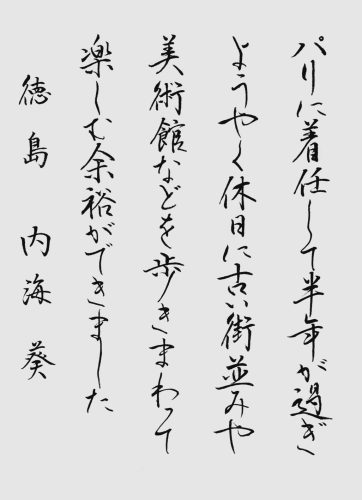 パリに着任して半年が過ぎ
ようやく休日に古い街並みや
美術館などを歩きまわって
楽しむ余裕ができました
徳島 内海葵